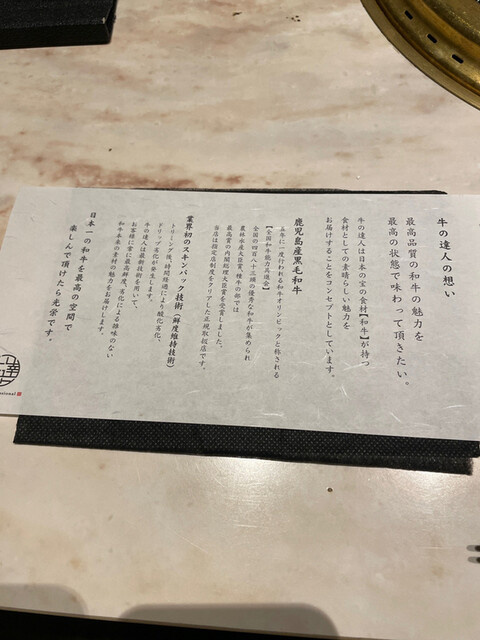 牛の達人の想い
最高品質の和牛の魅力を
最高の状態で味わって頂きたい。
牛の達人は日本の宝の食材【和牛】が持つ
食材としての素晴らしい魅力を
お届けすることをコンセプトとしています。
鹿児島産黒毛和牛
五年に一度行われる和牛オリンピックと称される
【全国和牛能力共進会】
全国の四百八十三頭の優秀な和牛が集められ
農林水産大臣賞、種牛の部では
最高賞の内閣総理大臣賞を受賞しました。
当店は指定店制度をクリアした正規取扱店です。
業界初のスキンパック技術(鮮度維持技術)
トリミング後、時間経過により酸化劣化、
ドリップ劣化が発生します。
牛の達人は最新技術を用いて、
お客様に常に最高鮮度、劣化による雑味のない
和牛本来の素材の魅力をお届けします。
日本一の和牛を最高の空間で
楽しんで頂けたら光栄です。